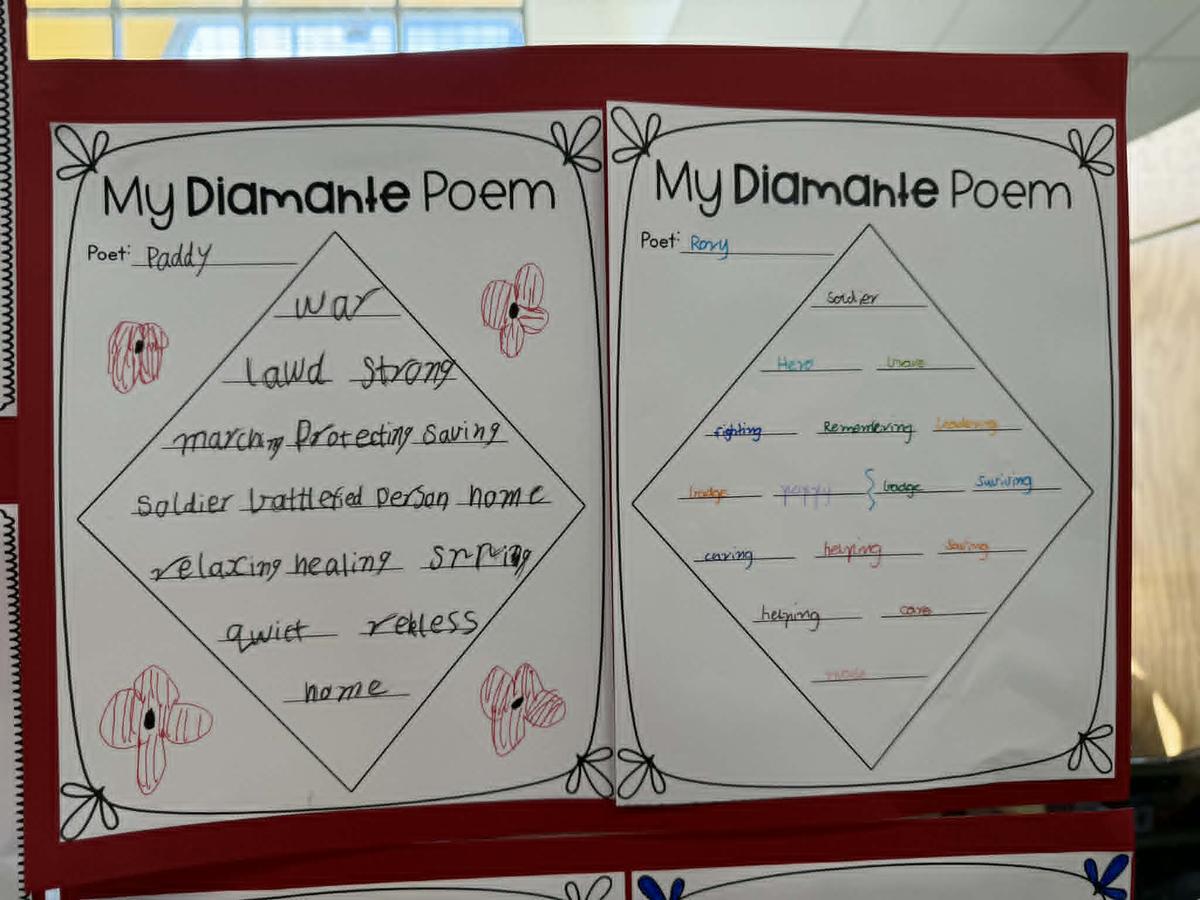 My Diamante Poem
Poet: Paddy
war
lawd strong
marching Protecting saving
soldier battlefied person home
relaxing healing
quiet rekless
home
My Diamante Poem
Poet: Rory
Soldier
Hero brave
fighting Remembering Leadering
badge happy badge Suviving
caring helping Saving
helping care